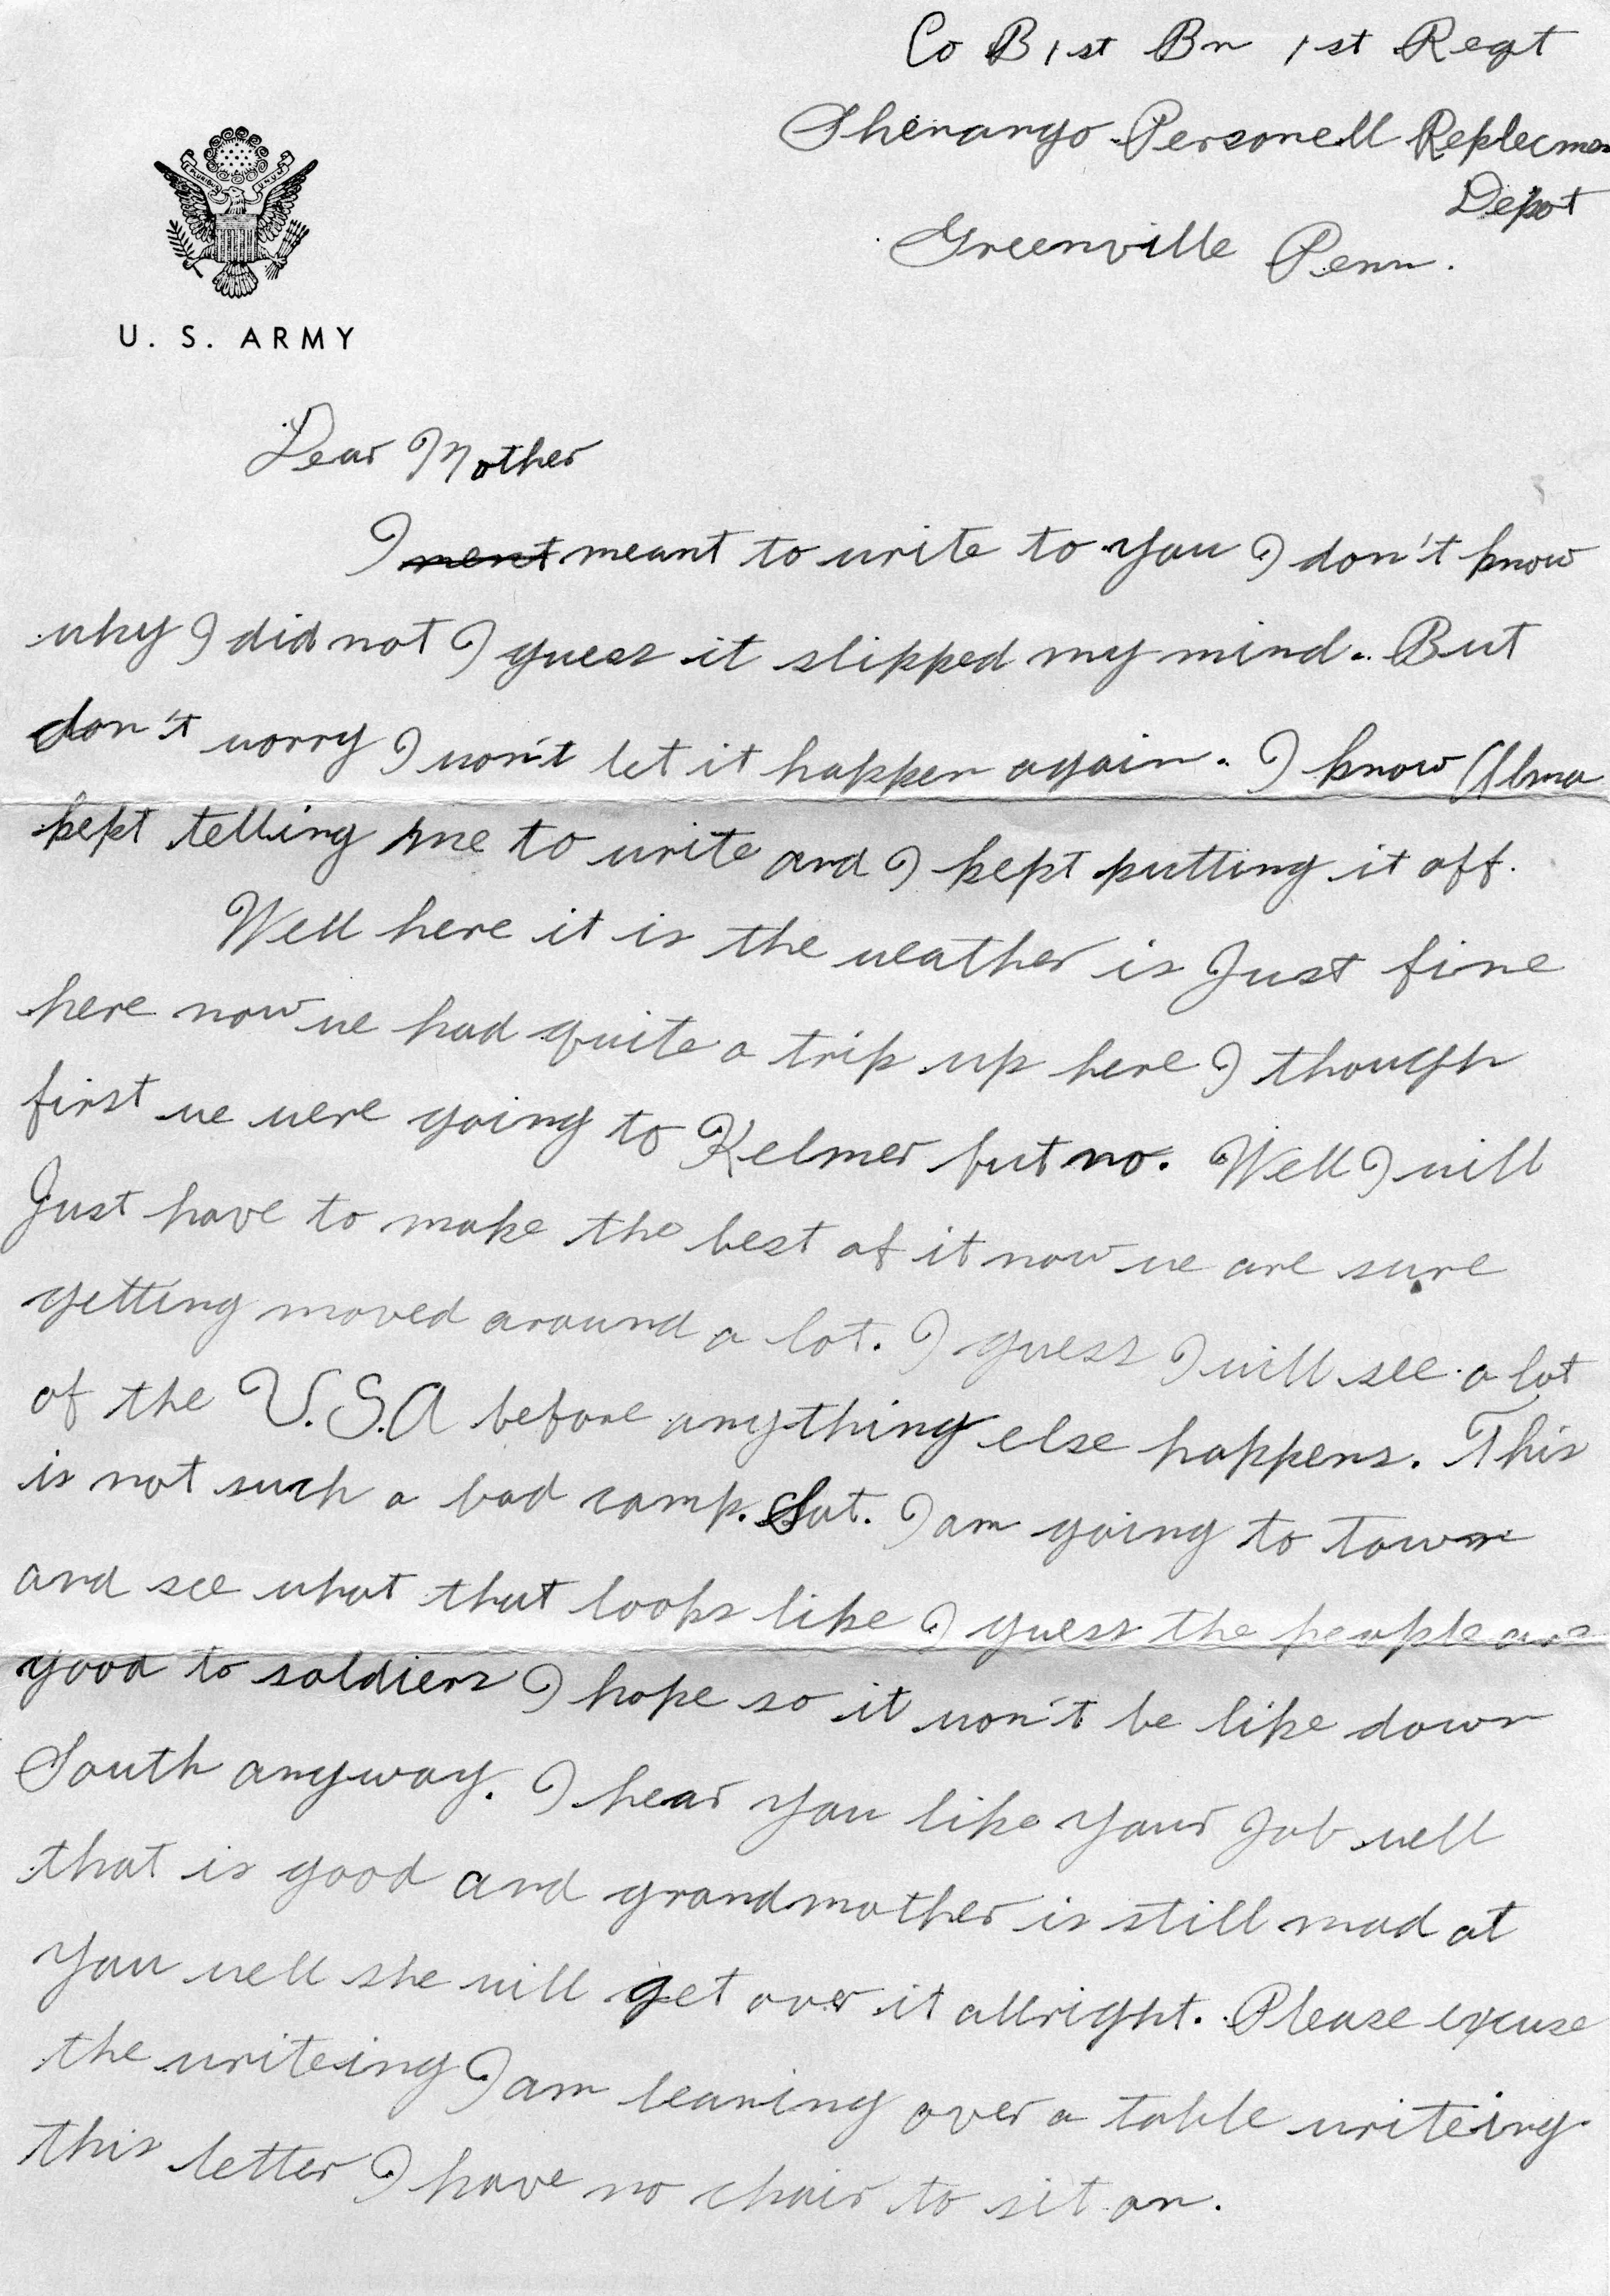 Co B 1st Bn 1st Regt
Shenango Personell Replecmen
Depot
Greenville Penn.
U. S. ARMY
Dear Mother
I ment meant to write to you I don't know
why I did not I guess it slipped my mind. But
don't worry I won't let it happen again. I know Alma
kept telling me to write and I kept putting it off.
Well here it is the weather is Just fine
here now we had quite a trip up here I though
first we were going to Kelmer but no. Well I will
Just have to make the best of it now we are sure
getting moved around a lot. I guess I will see a lot
of the U.S.A before anything else happens. This
is not such a bad camp. Sat. I am going to town
and see what that looks like I guess the people are
good to soldiers I hope so it won't be like down
South anyway. I hear you like your Job well
that is good and grandmother is still mad at
you well she will get over it allright. Please excuse
the writeing I am leaning over a table writeing
this letter I have no chair to sit on.